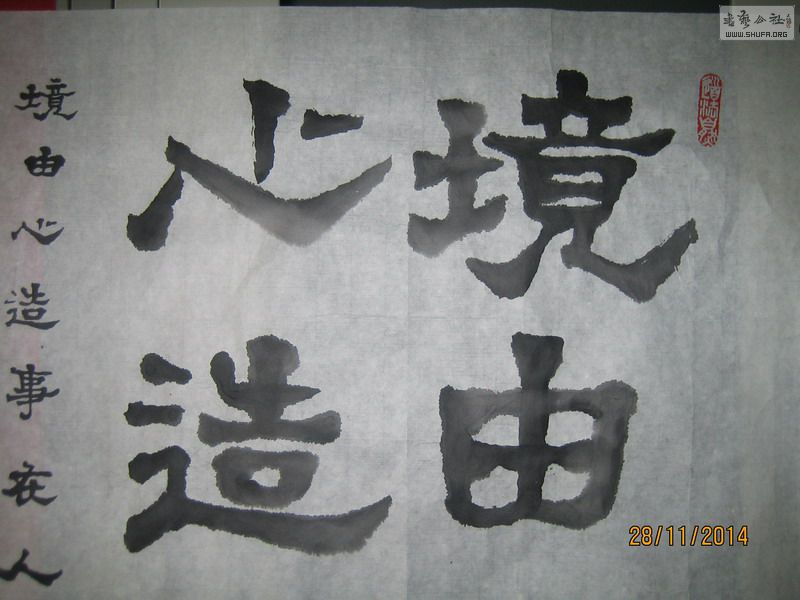 境由
心造
境由心造事在人
道法自然
書藝公社
WWW.SHUFA.ORG
28/11/2014